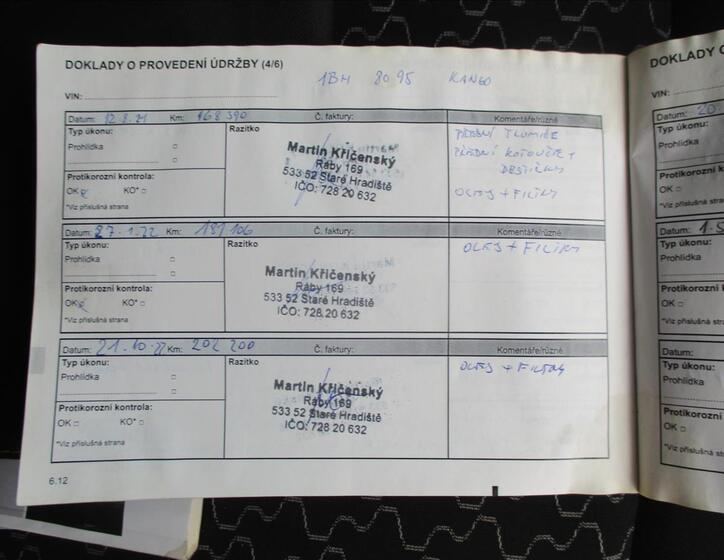 DOKLADY O PROVEDENÍ ÚDRŽBY (4/6)
1BH 8095 KANGO
VIN:
Datum: 12.8.21 Km: 168 390 Č. faktury: Komentáře/různé
Typ úkonu:
Prohlídka
Razítko
Martin Křičenský
Ráby 169
533 52 Staré Hradiště
IČO: 728 20 632
PŘEDNÍ TLUMIČE
PŘEDNÍ KOTOUČE +
DESTIČKY
OLEJ + FILTRY
Protikorozní kontrola:
OK KO*
*Viz příslušná strana
Datum: 27.1.22 Km: Č. faktury: Komentáře/různé
Typ úkonu:
Prohlídka
Razítko
Martin Křičenský
Ráby 169
533 52 Staré Hradiště
IČO: 728 20 632
OLEJ + FILTRY
Protikorozní kontrola:
OK KO*
*Viz příslušná strana
Datum: 21.10.22 Km: 202 200 Č. faktury: Komentáře/různé
Typ úkonu:
Prohlídka
Razítko
Martin Křičenský
Ráby 169
533 52 Staré Hradiště
IČO: 728 20 632
OLEJ + FILTRY
Protikorozní kontrola:
OK KO*
*Viz příslušná strana
6.12
DOKLADY O
VIN:
Datum: 20
Typ úkonu:
Prohlídka
Protikorozní k
OK
*Viz příslušná
Datum:
Typ úkonu:
Prohlídka
Protikorozní kon
OK
*Viz příslušná str
Datum:
Typ úkonu:
Prohlídka
Protikorozní
OK
*Viz příslušná